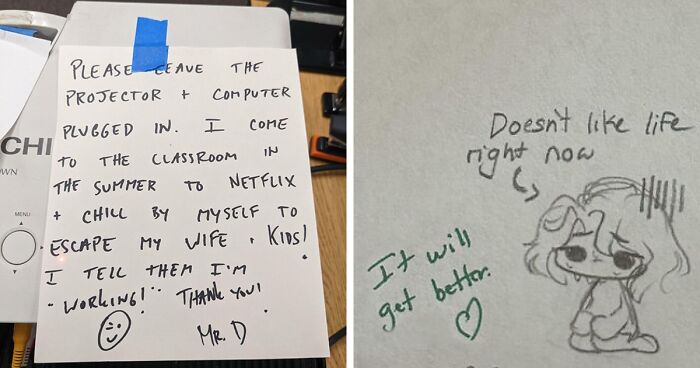 PLEASE LEAVE THE
PROJECTOR + COMPUTER
PLUGGED IN. I COME
TO THE CLASSROOM IN
THE SUMMER TO NETFLIX
+ CHILL BY MYSELF TO
ESCAPE MY WIFE + KIDS!
I TELL THEM I'M
"WORKING!" THANK YOU!
MR. D
CHI
WN
MENU
Doesn't like life
right now
It will
get better.